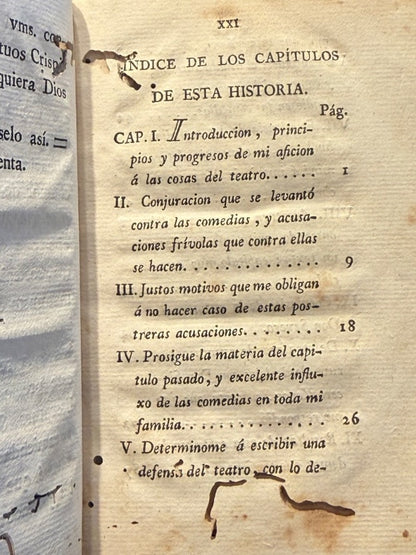 vms. con
tuos Crisp
quiera Dios
selo así. =
enta.
XXI
ÍNDICE DE LOS CAPÍTULOS
DE ESTA HISTORIA.
Pág.
CAP. I. Introduccion, princi-
pios y progresos de mi aficion
á las cosas del teatro...... 1
II. Conjuracion que se levantó
contra las comedias, y acusa-
ciones frívolas que contra ellas
se hacen. . . . . . . . . . . . . 9
III. Justos motivos que me obligan
á no hacer caso de estas pos-
treras acusaciones. . . . . . . . 18
IV. Prosigue la materia del capi-
tulo pasado, y excelente influ-
xo de las comedias en toda mi
familia. . . . . . . . . . . . . 26
V. Determinome á escribir una
defensa del teatro, con lo de-